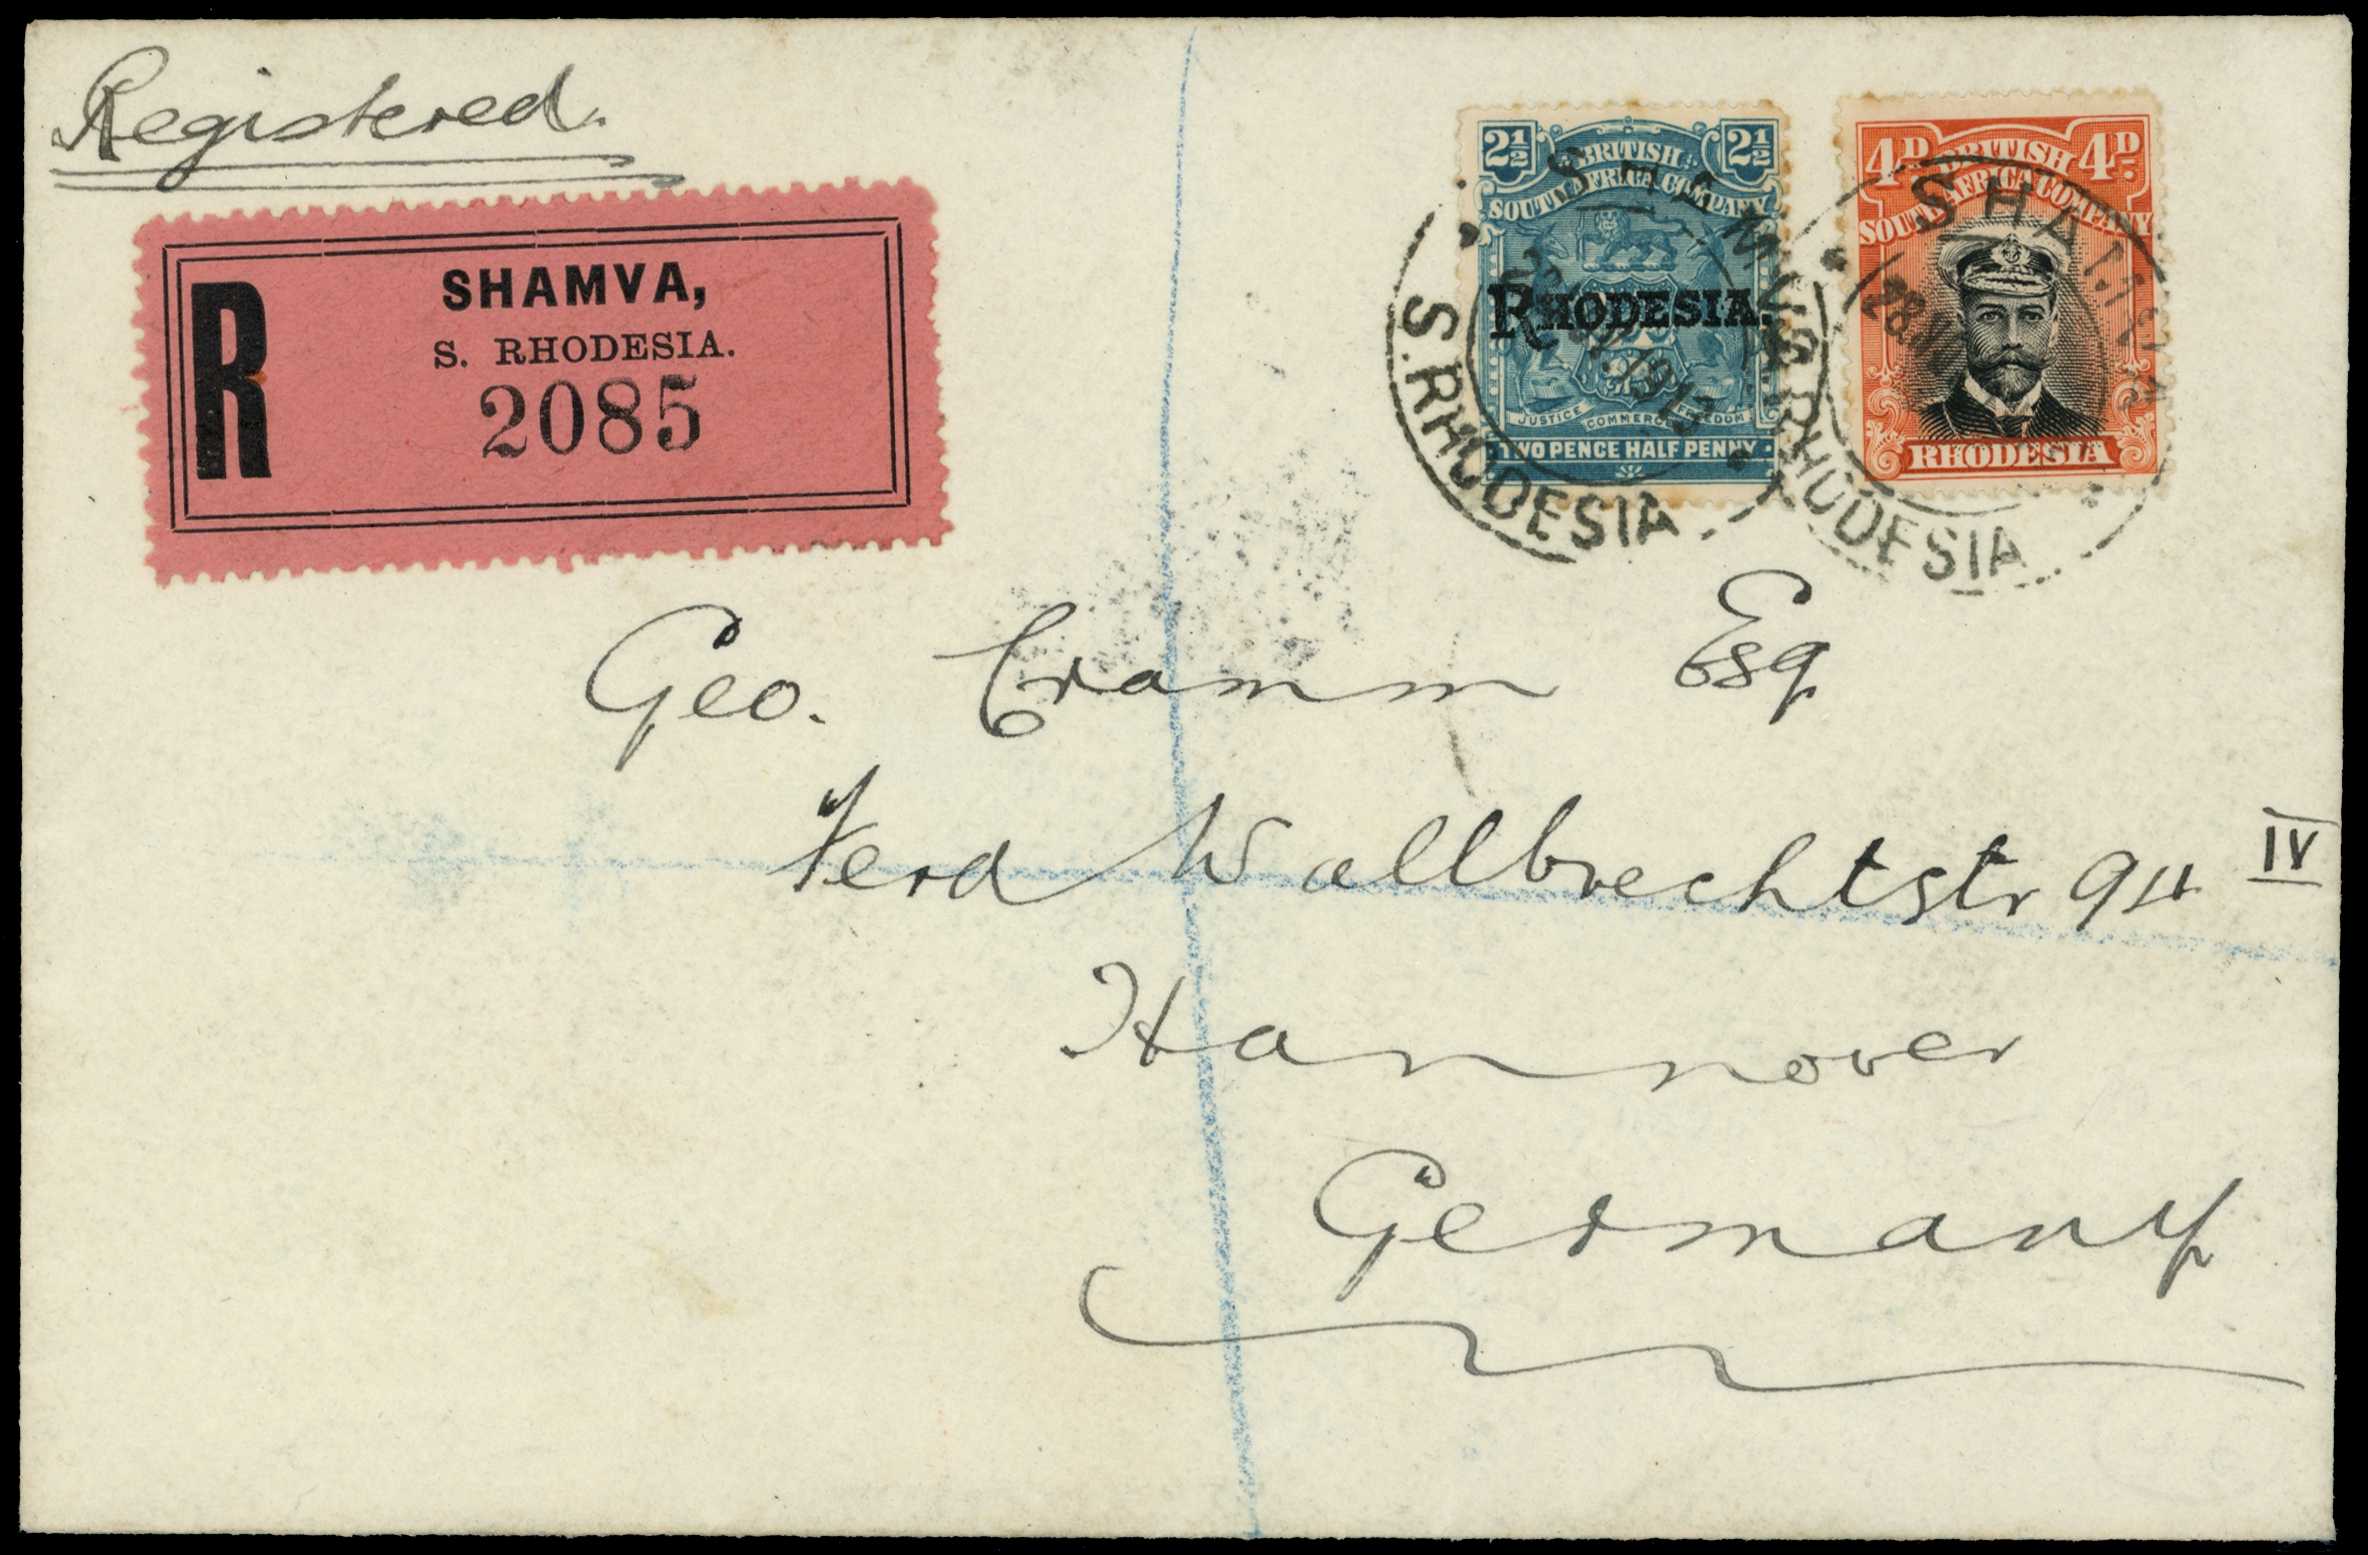 Registered.
R
SHAMVA,
S. RHODESIA.
2085
2½ 2½
BRITISH
SOUTH AFRICA COMPANY
RHODESIA.
JUSTICE COMMERCE FREEDOM
TWO PENCE HALF PENNY
4D. BRITISH 4D.
SOUTH AFRICA COMPANY
RHODESIA
SHAMVA
S. RHODESIA
SHAMVA
RHODESIA
Geo. Cramm Esq
Ferd Wallbrechtstr 94 IV
Hannover
Germany